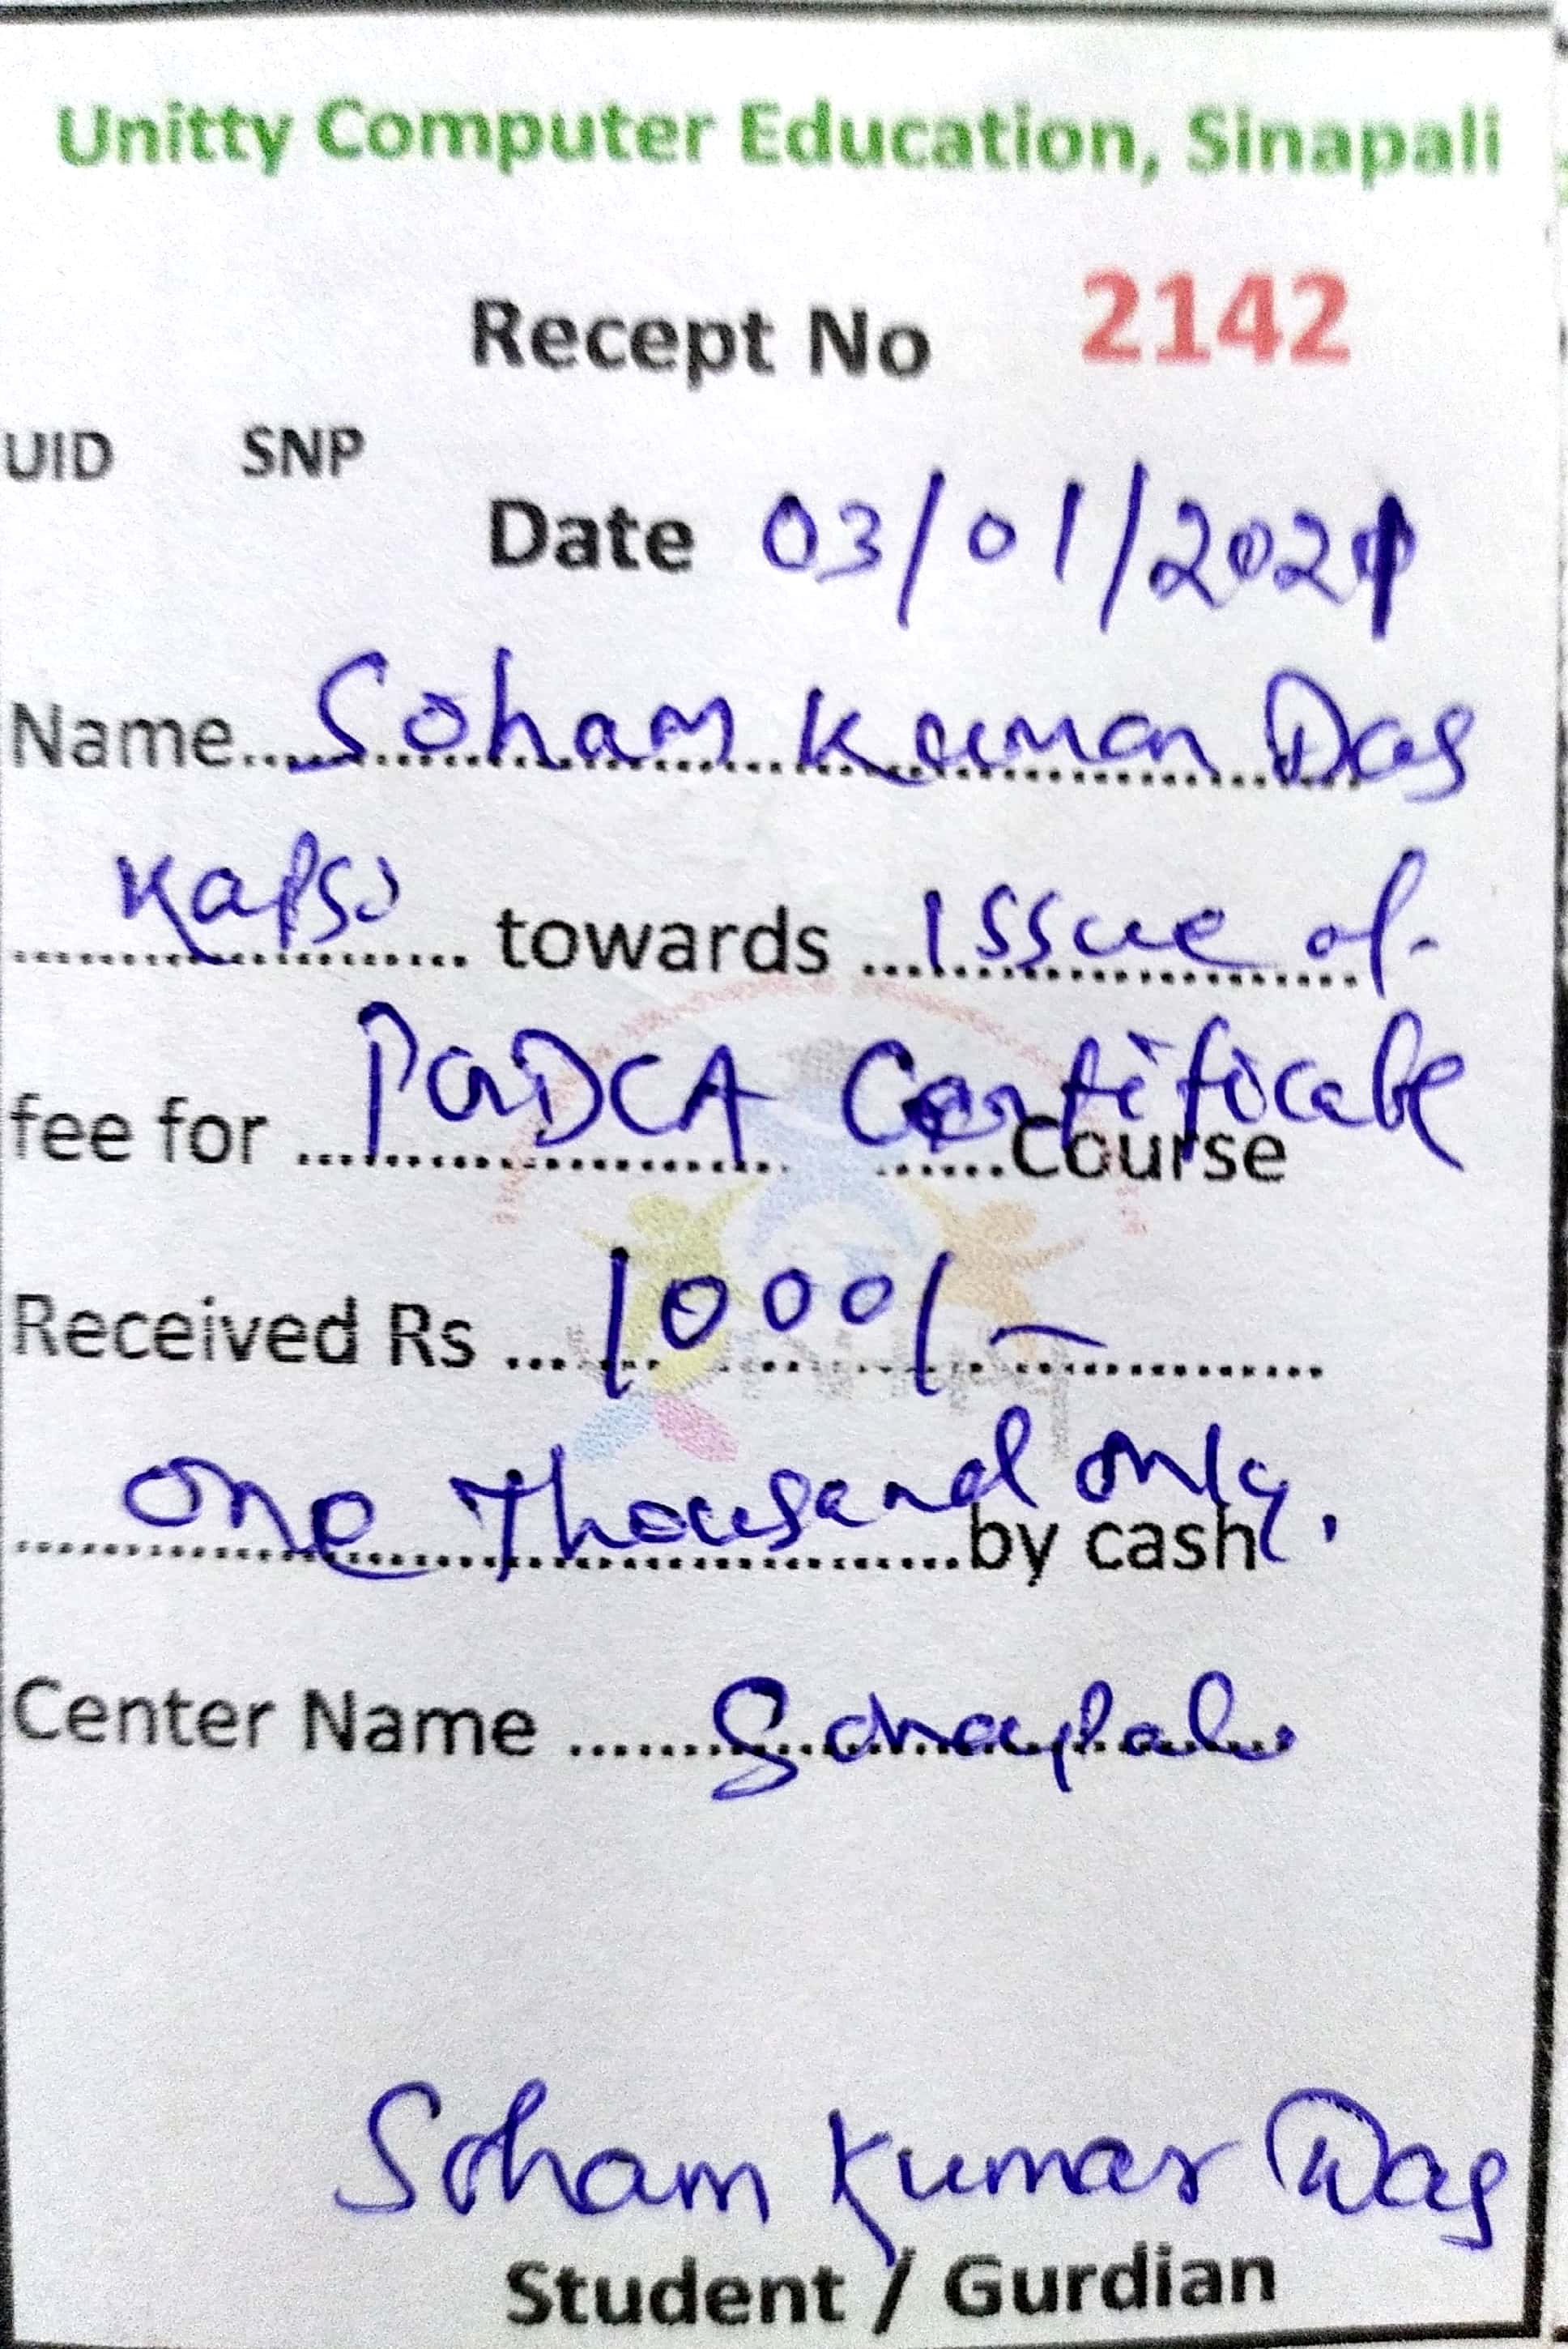 Unitty Computer Education, Sinapali
Recept No 2142
UID SNP
Date 03/01/2021
Name Soham Kumar Das
towards Issue of
fee for PGDCA Certificate Course
Received Rs 1000/-
One Thousand only. by cash
Center Name Sinapali
Soham Kumar Das
Student / Gurdian